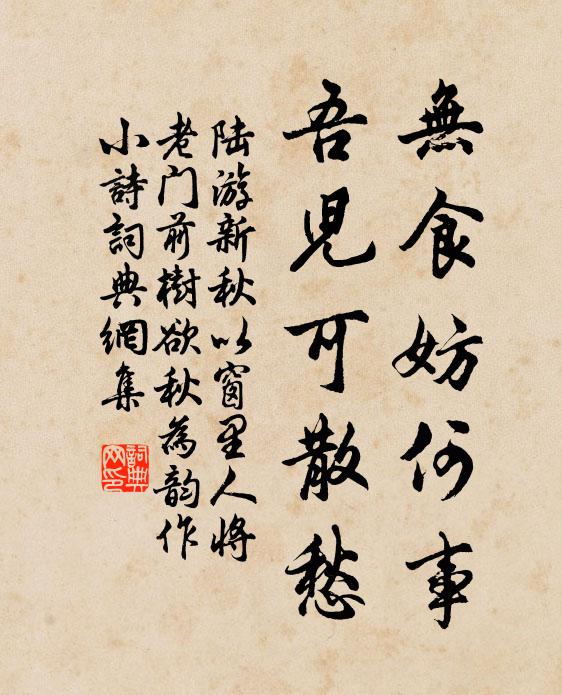 無食妨何事
吾兒可散愁
陆游新秋以窗里人将
老门前樹欲秋為韵作
小詩詞典網集
詞典
网印